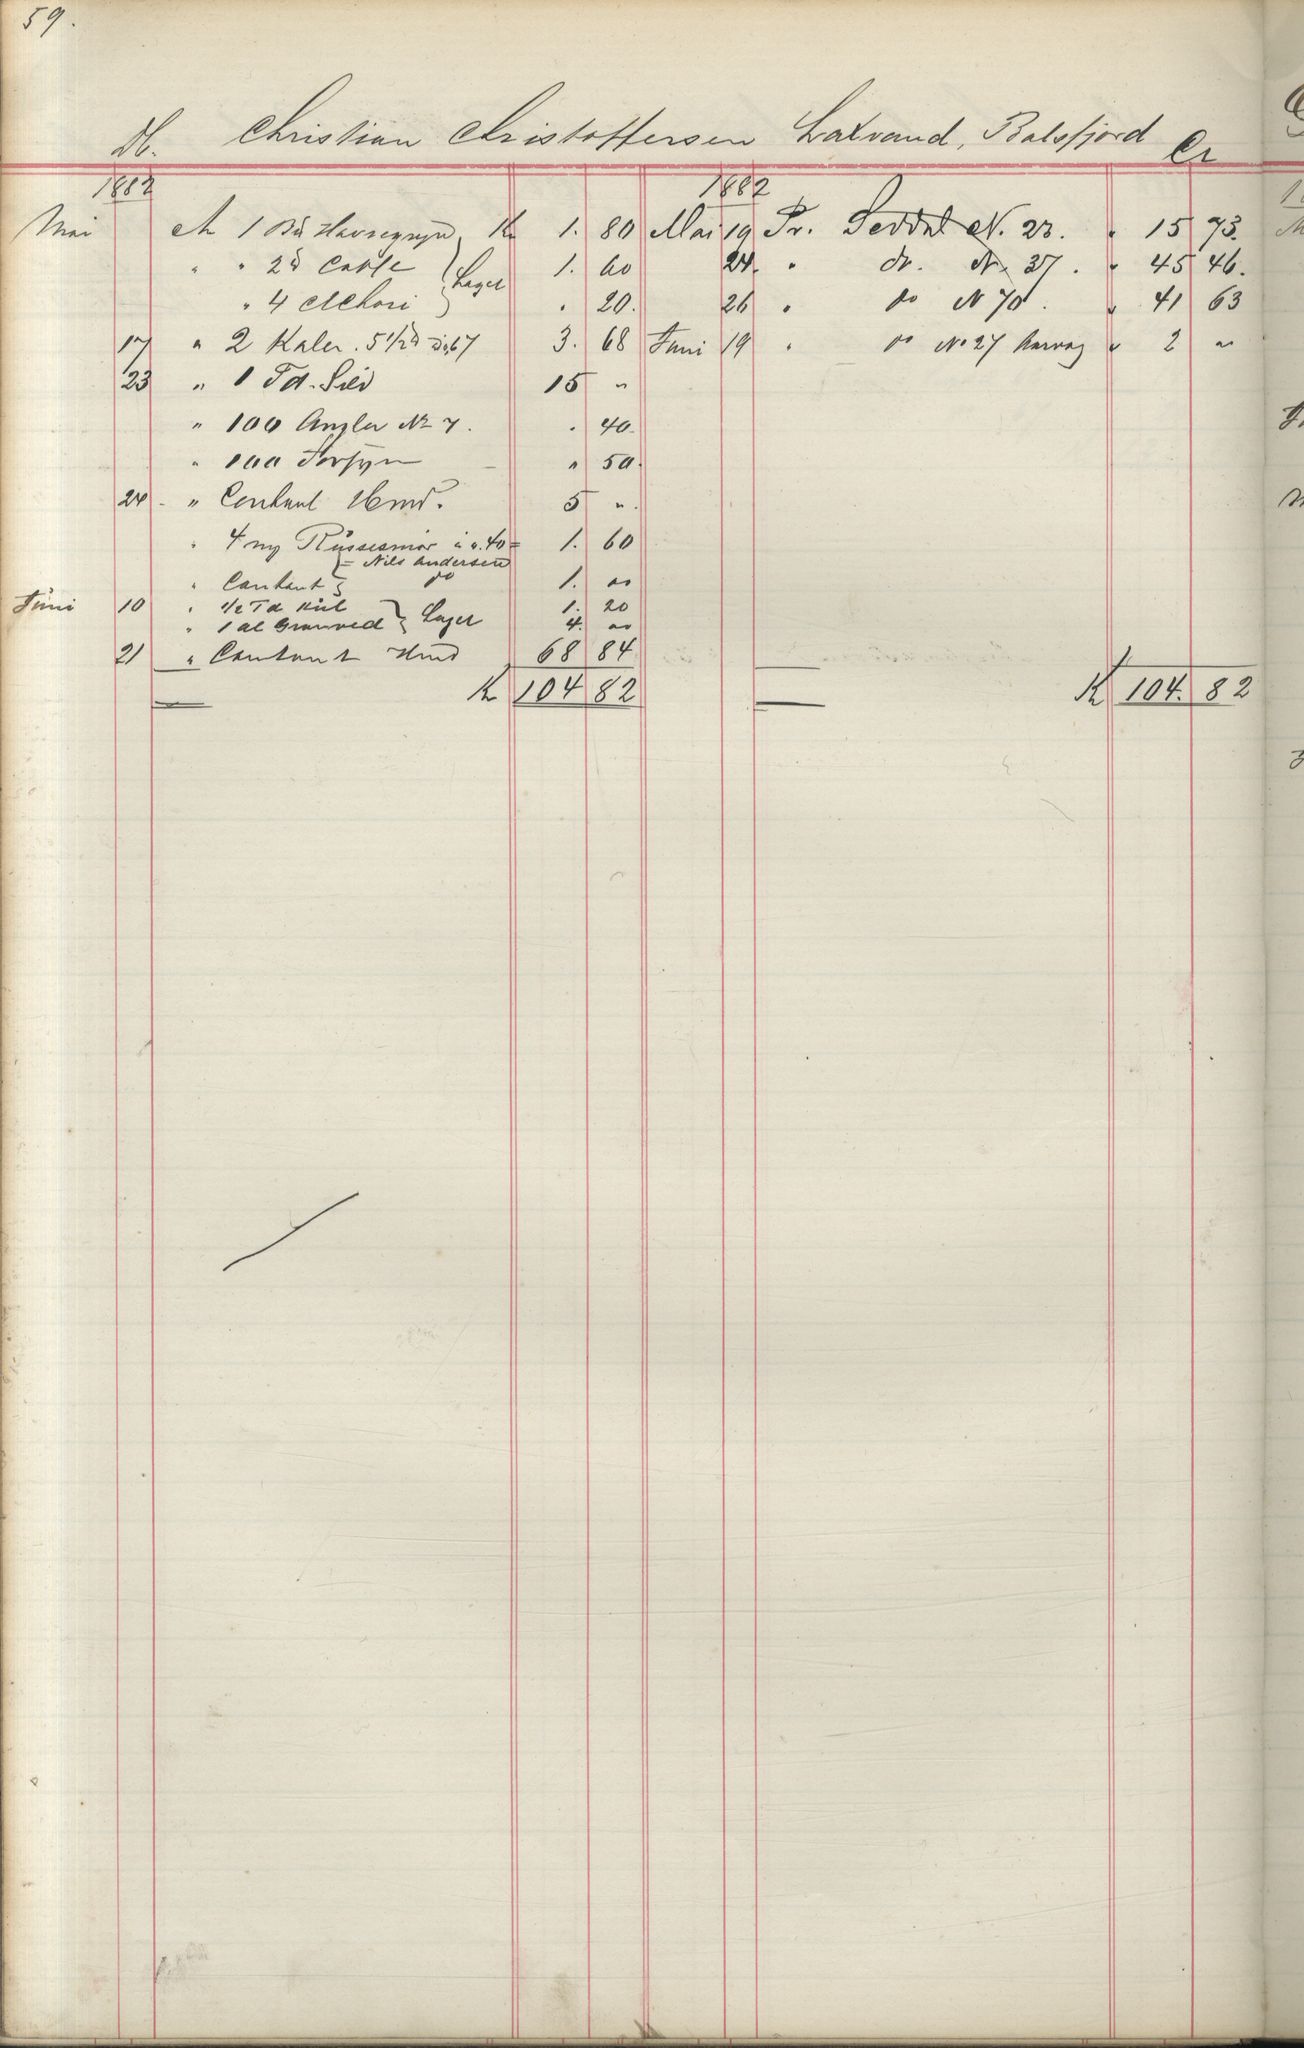 59.
Db. Christian Christoffersen Laxvand, Balsfjord Cr
1882 1882
Mai At 1 Havregryn K 1. 80 Mai 19 Pr. Seddel N. 23. " 15 73.
" " 2 tt Caffe } Lager 1. 60 24. " do. N. 37. " 45 46.
" 4 Cichori " 20. 26 " do N 70. " 41 63
17 " 2 Kaler. 5 1/2 tt 67 3. 68 Juni 19 " do No 27 " 2 "
23 " 1 Td. Sild 15 "
" 100 Angler No 7. " 40.
" 100 Forsyn " 50.
24 " Contant Hmd. 5 "
" 4 mg Russesmør a ". 40 = 1. 60
" Contant } = Nils Andersen do 1. "
Juni 10 " 1/2 Td Kul } Lager 1. 20
" 1 al Granved 4. "
21 " Contant Hmd 68 84
K 104 82 K 104. 82